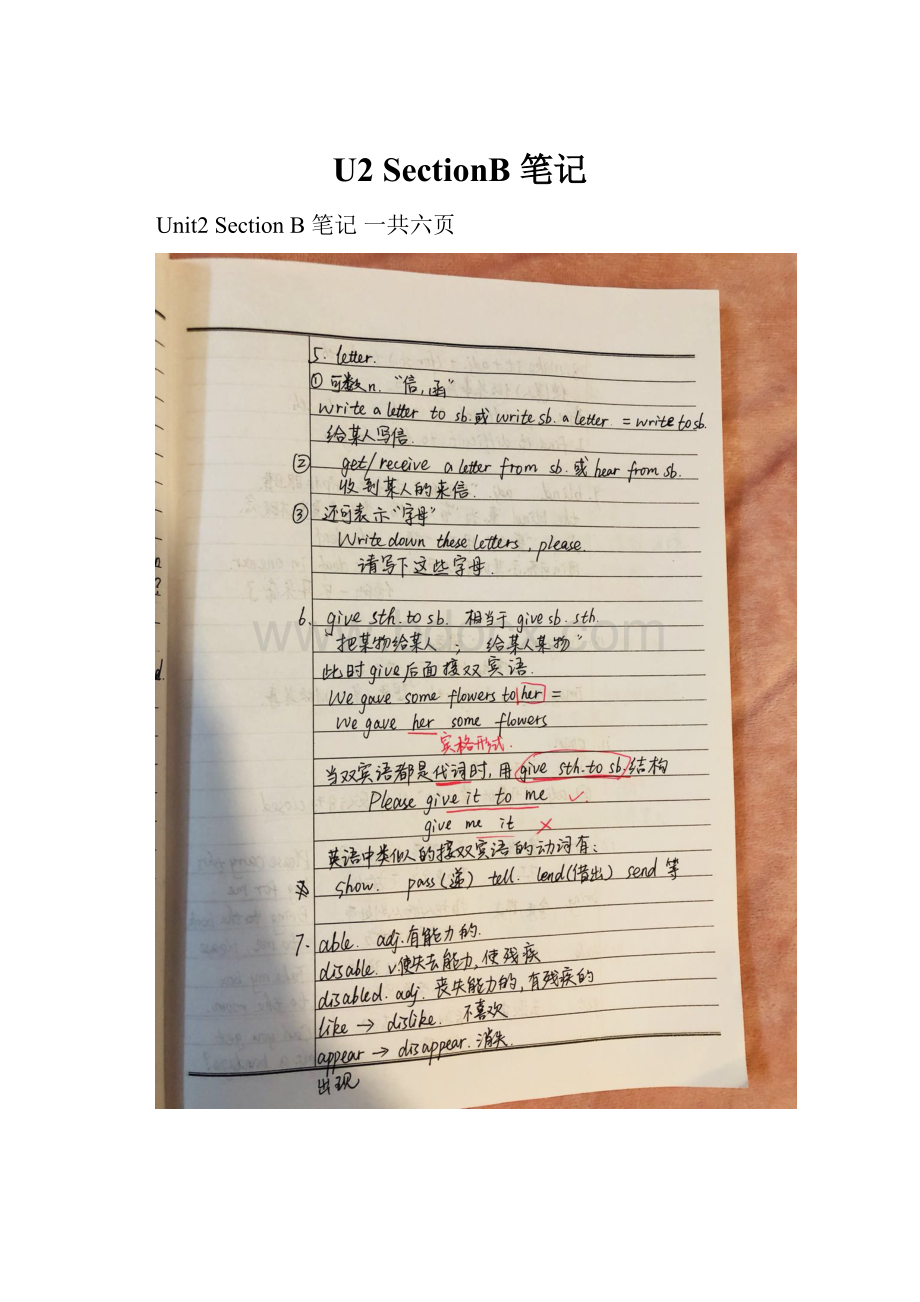 U2 SectionB 笔记
Unit2 Section B 笔记 一共六页
5. letter.
①可数n. “信,函”
write a letter to sb.或write sb. a letter. = write to sb.
给某人写信.
② get/receive a letter from sb. 或 hear from sb.
收到某人的来信.
③ 还可表示“字母”
Write down these letters, please.
请写下这些字母.
6. give sth. to sb. 相当于 give sb. sth.
“把某物给某人 ; 给某人某物”
此时give后面接双宾语.
We gave some flowers to her =
We gave her some flowers
宾格形式.
当双宾语都是代词时,用give sth. to sb.结构
Please give it to me ✓.
give me it ✗
英语中类似人的接双宾语的动词有:
show. pass(递) tell. lend(借出) send 等
7. able. adj.有能力的.
disable. v.使失去能力,使残疾
disabled. adj. 丧失能力的,有残疾的
like → dislike. 不喜欢
appear → disappear. 消失.
出现